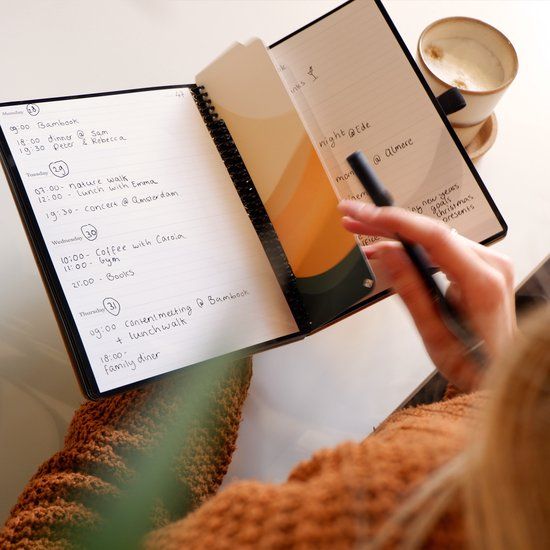 Monday 28
09:00 Bambook
18:00 dinner @ Sam
19:30 Peter & Rebecca
Tuesday 29
07:00- nature walk
12:00 - Lunch with Emma
19:30 - concert @ Amsterdam
Wednesday 30
10:00- Coffee with Carola
11:00- Gym
21:00 - Books
Thursday 31
09:00 - content meeting @ Bambook
+ lunchwalk
18:00-
family diner
night @ Ede
@ Almere
new years
goals
christmas
presents